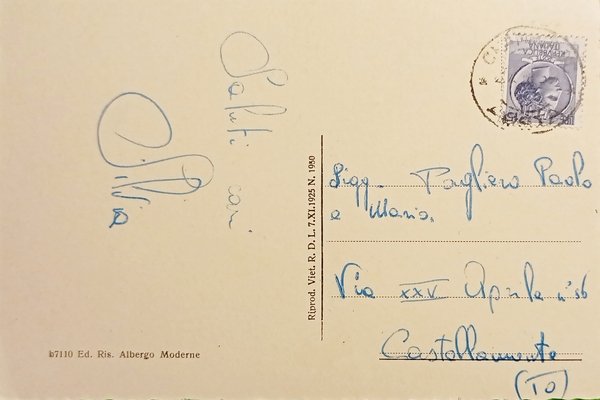 Saluti cari
Silvia
Sigg. Pagliero Paolo
e Maria.
Via XXV Aprile n° 56
Castellamonte
(TO)
Riprod. Viet. R. D. L. 7.XI.1925 N. 1950
b7110 Ed. Ris. Albergo Moderne
REPVBBLICA
ITALIANA